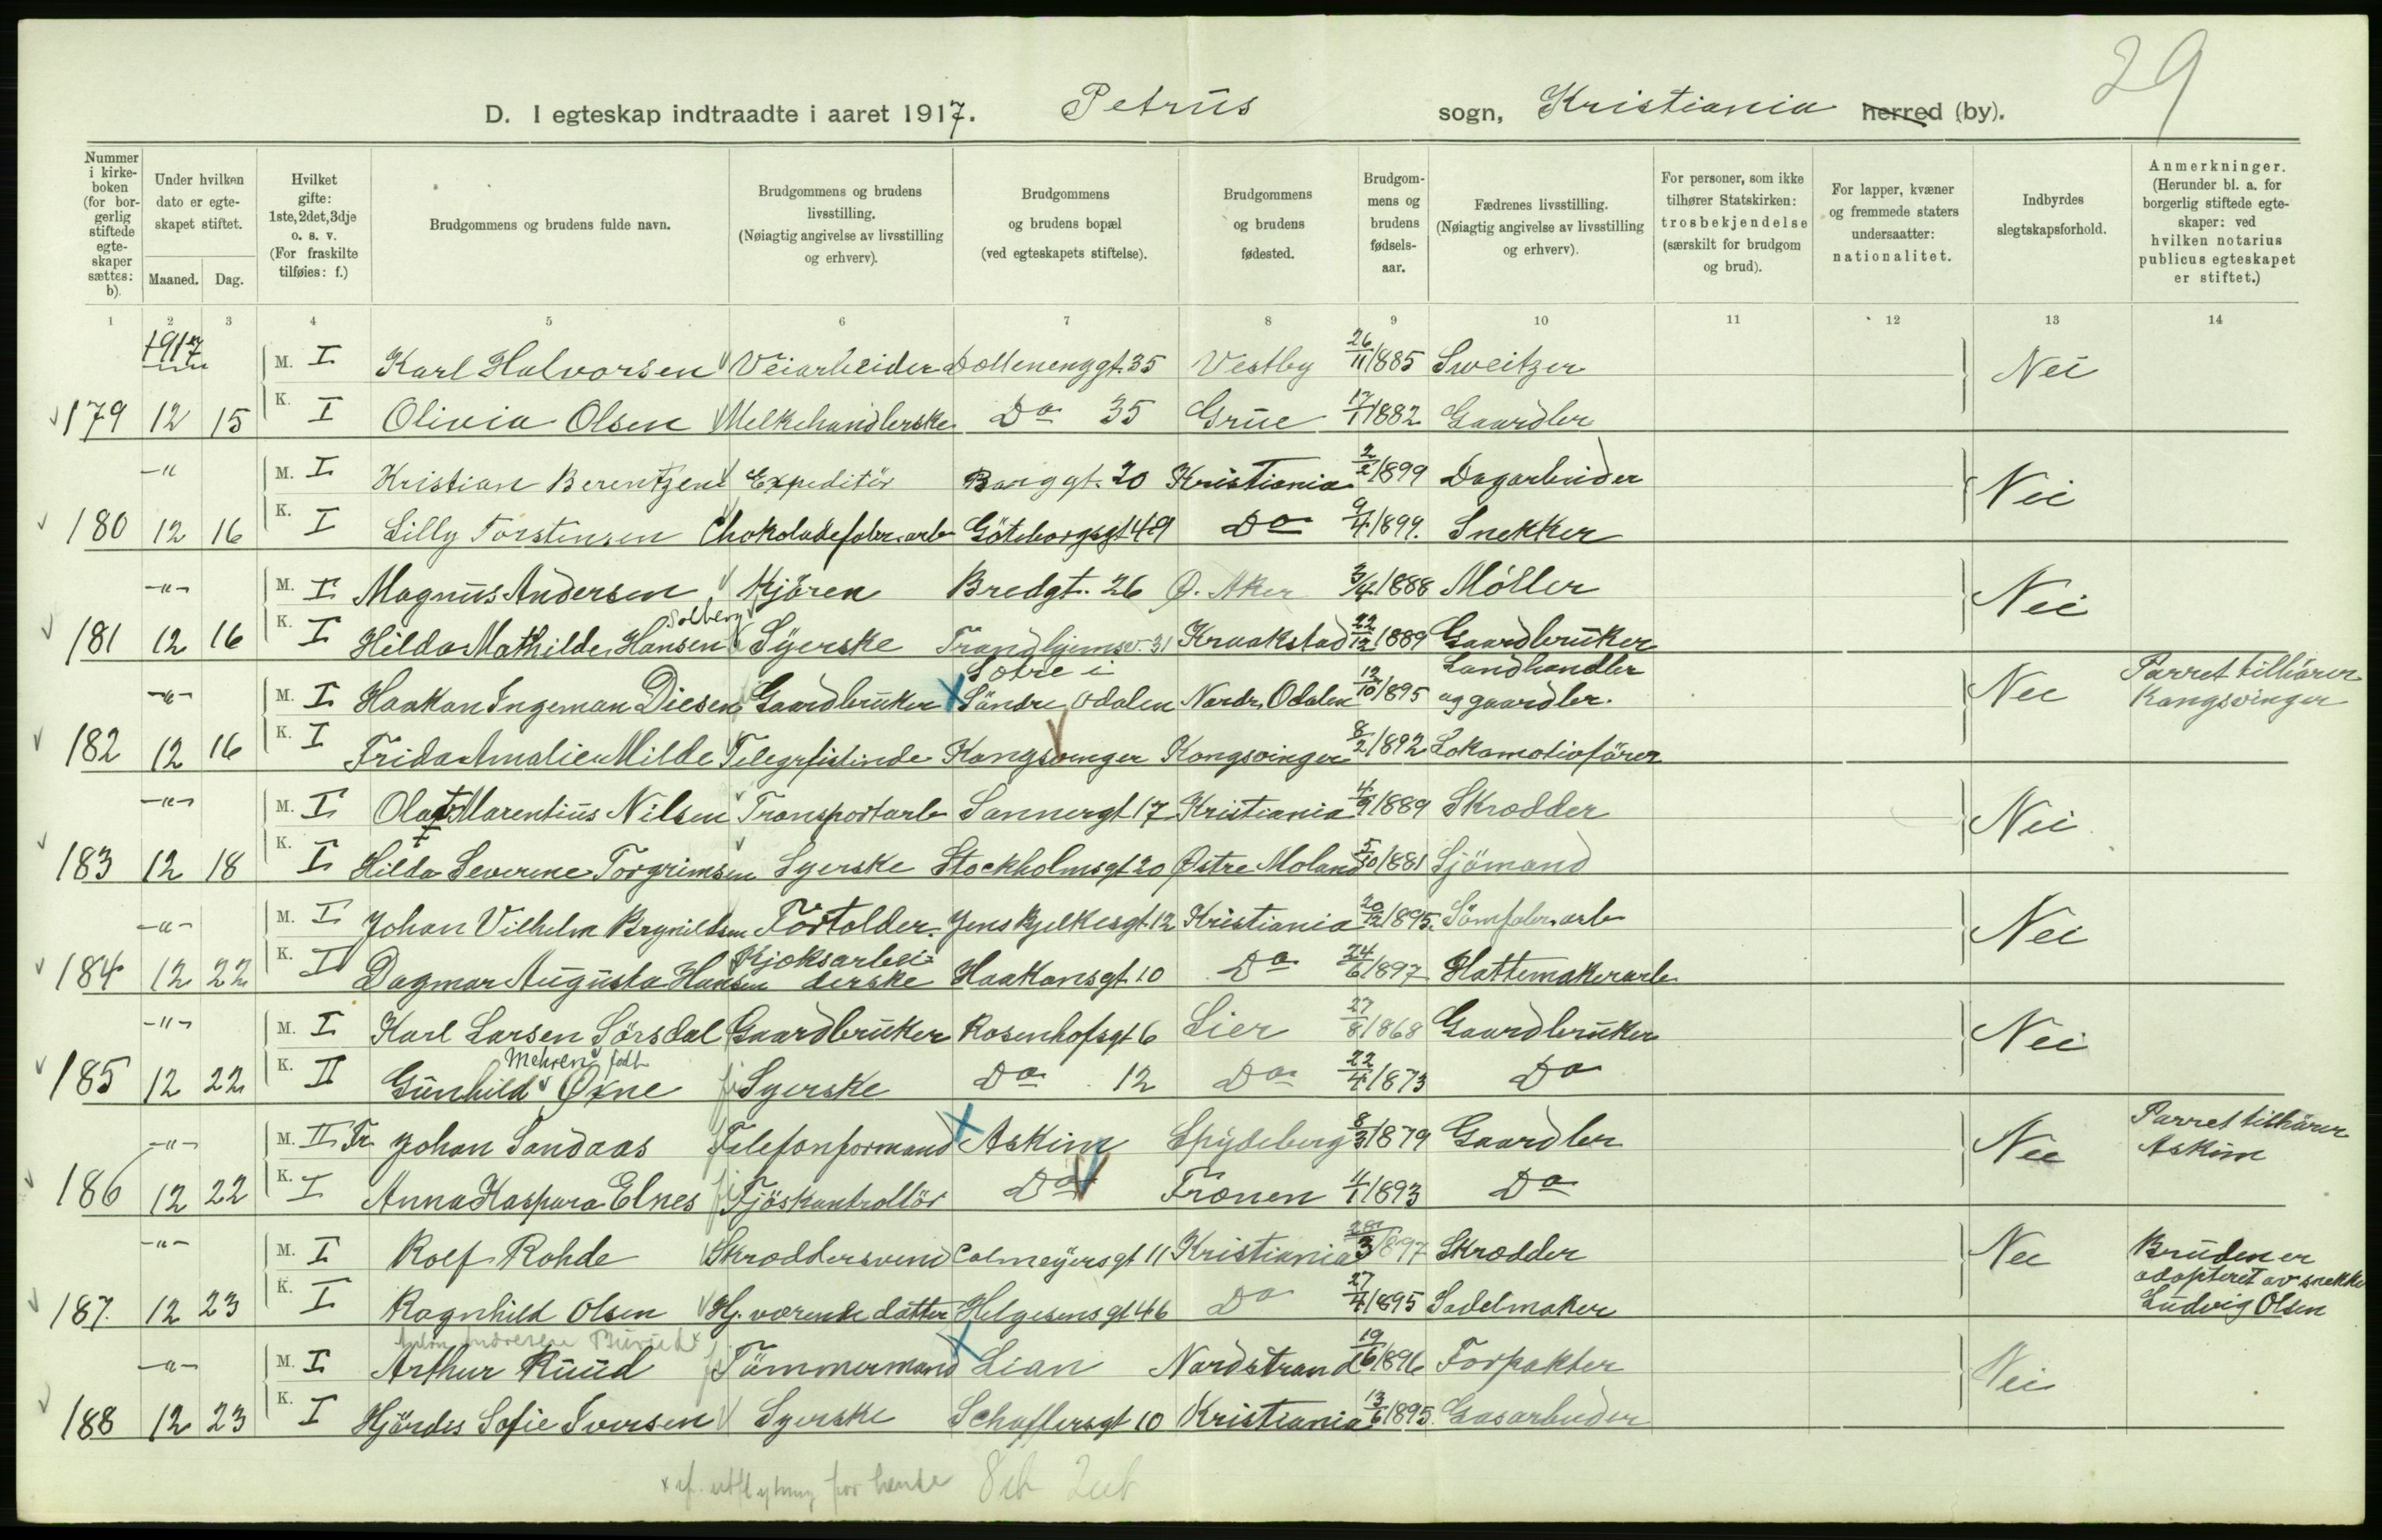 29
D. I egteskap indtraadte i aaret 1917. Petrus sogn, Kristiania herred (by).
Nummer i kirke-boken (for bor-gerlig stiftede egte-skaper sættes: b).
Under hvilken dato er egte-skapet stiftet.
Maaned. Dag.
Hvilket gifte: 1ste, 2det, 3dje o. s. v. (For fraskilte tilføies: f.)
Brudgommens og brudens fulde navn.
Brudgommens og brudens livsstilling. (Nøiagtig angivelse av livsstilling og erhverv).
Brudgommens og brudens bopæl (ved egteskapets stiftelse).
Brudgommens og brudens fødested.
Brudgom-mens og brudens fødsels-aar.
Fædrenes livsstilling. (Nøiagtig angivelse av livsstilling og erhverv).
For personer, som ikke tilhører Statskirken: trosbekjendelse (særskilt for brudgom og brud).
For lapper, kvæner og fremmede staters undersaatter: nationalitet.
Indbyrdes slegtskapsforhold.
Anmerkninger. (Herunder bl. a. for borgerlig stiftede egte-skaper: ved hvilken notarius publicus egteskapet er stiftet.)
1 2 3 4 5 6 7 8 9 10 11 12 13 14
1917
M. I Karl Halvorsen Veiarbeider Dællenenggt. 35 Vestby 26/11 1885 Sweitzer Nei
179 12 15 K. I Olivia Olsen Melkehandlerske Do 35 Grue 17/1 1882 Gaardbr
-"- M. I Kristian Berentzen Expeditör Borggt. 20 Kristiania 2/2 1899 Dagarbeider Nei
180 12 16 K. I Lilly Torstensen Chokoladefabr.arb Göteborgsgt 49 Do 9/4 1899. Snekker
-"- M. I Magnus Andersen Kjören Bredgt. 26 Ø. Aker 3/4 1888 Möller Nei
Solberg
181 12 16 K. I Hilda Mathilde Hansen Syerske Trondhjemsv. 31 Kraakstad 22/12 1889 Gaardbruker
Sætre i Landhandler Parret tilhörer
-"- M. I Haakon Ingeman Diesen Gaardbruker Söndre Odalen Nordr. Odalen 12/10 1895 og gaardbr. Nei Kongsvinger
182 12 16 K. I Frida Amalie Milde Telegrfistinde Kongsvinger Kongsvinger 8/2 1892 Lokomotivförer
-"- M. I Olaf Marentius Nilsen Transportarb Sannergt 17 Kristiania 4/9 1889 Skrædder Nei
183 12 18 K. I Hilda Severine Torgrimsen Syerske Stockholmsgt 20 Østre Moland 5/10 1881 Sjömand
-"- M. I Johan Vilhelm Brynildsen Fortolder. Jens Bjelkesgt. 12 Kristiania 20/12 1895. Sömfabr.arb Nei
Kjöksarbei-
184 12 22 K. I Dagmar Augusta Hansen derske Haakonsgt. 10 Do 24/6 1897 Hattemakerarb
-"- M. I Karl Larsen Sörsdal Gaardbruker Rosenhofsgt 6 Lier 27/8 1868 Gaardbruker Nei
Mehren født
185 12 22 K. II Gunhild Øxne Syerske Do 12 Do 22/4 1873 Do
Parret tilhörer
-"- M. II Fr. Johan Sandaas Telefonformand Askim Spydeberg 8/3 1879 Gaardbr Nei Askim
186 12 22 K. I Anna Kaspara Elnes Fjöskontrollör Do Trönen 4/1 1893 Do
-"- M. I Rolf Rohde Skræddersvend Calmeyersgt 11 Kristiania 28/3 1897 Skrædder Nei Bruden er
adopteret av snekker
187. 12 23 K. I Ragnhild Olsen Hj. værende datter Helgesens gt 46 Do 27/4 1895 Sadelmaker Ludvig Olsen
-"- M. I Arthur Ruud Tömmermand Lian Nordstrand 19/6 1896 Forpakter Nei
188 12 23 K. I Hjördis Sofie Iversen Syerske Schaffersgt 10 Kristiania 13/6 1895. Gasarbeider